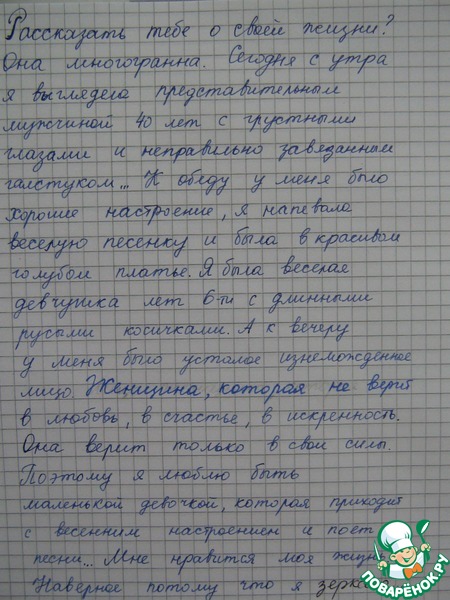 Рассказать тебе о своей жизни?
Она многогранна. Сегодня с утра
я выглядела представительным
мужчиной 40 лет с грустными
глазами и неправильно завязанным
галстуком... К обеду у меня было
хорошие настроение, я напевала
веселую песенку и была в красивом
голубом платье. Я была веселая
девчушка лет 6-ти с длинными
русыми косичками. А к вечеру
у меня было усталое изнемождённое
лицо. Женщина, которая не верит
в любовь, в счастье, в искренность.
Она верит только в свои силы.
Поэтому я люблю быть
маленькой девочкой, которая приходит
с весенним настроением и поет
песни... Мне нравится моя жизнь
Наверное потому что я
ПОВАРЁНОК.РУ